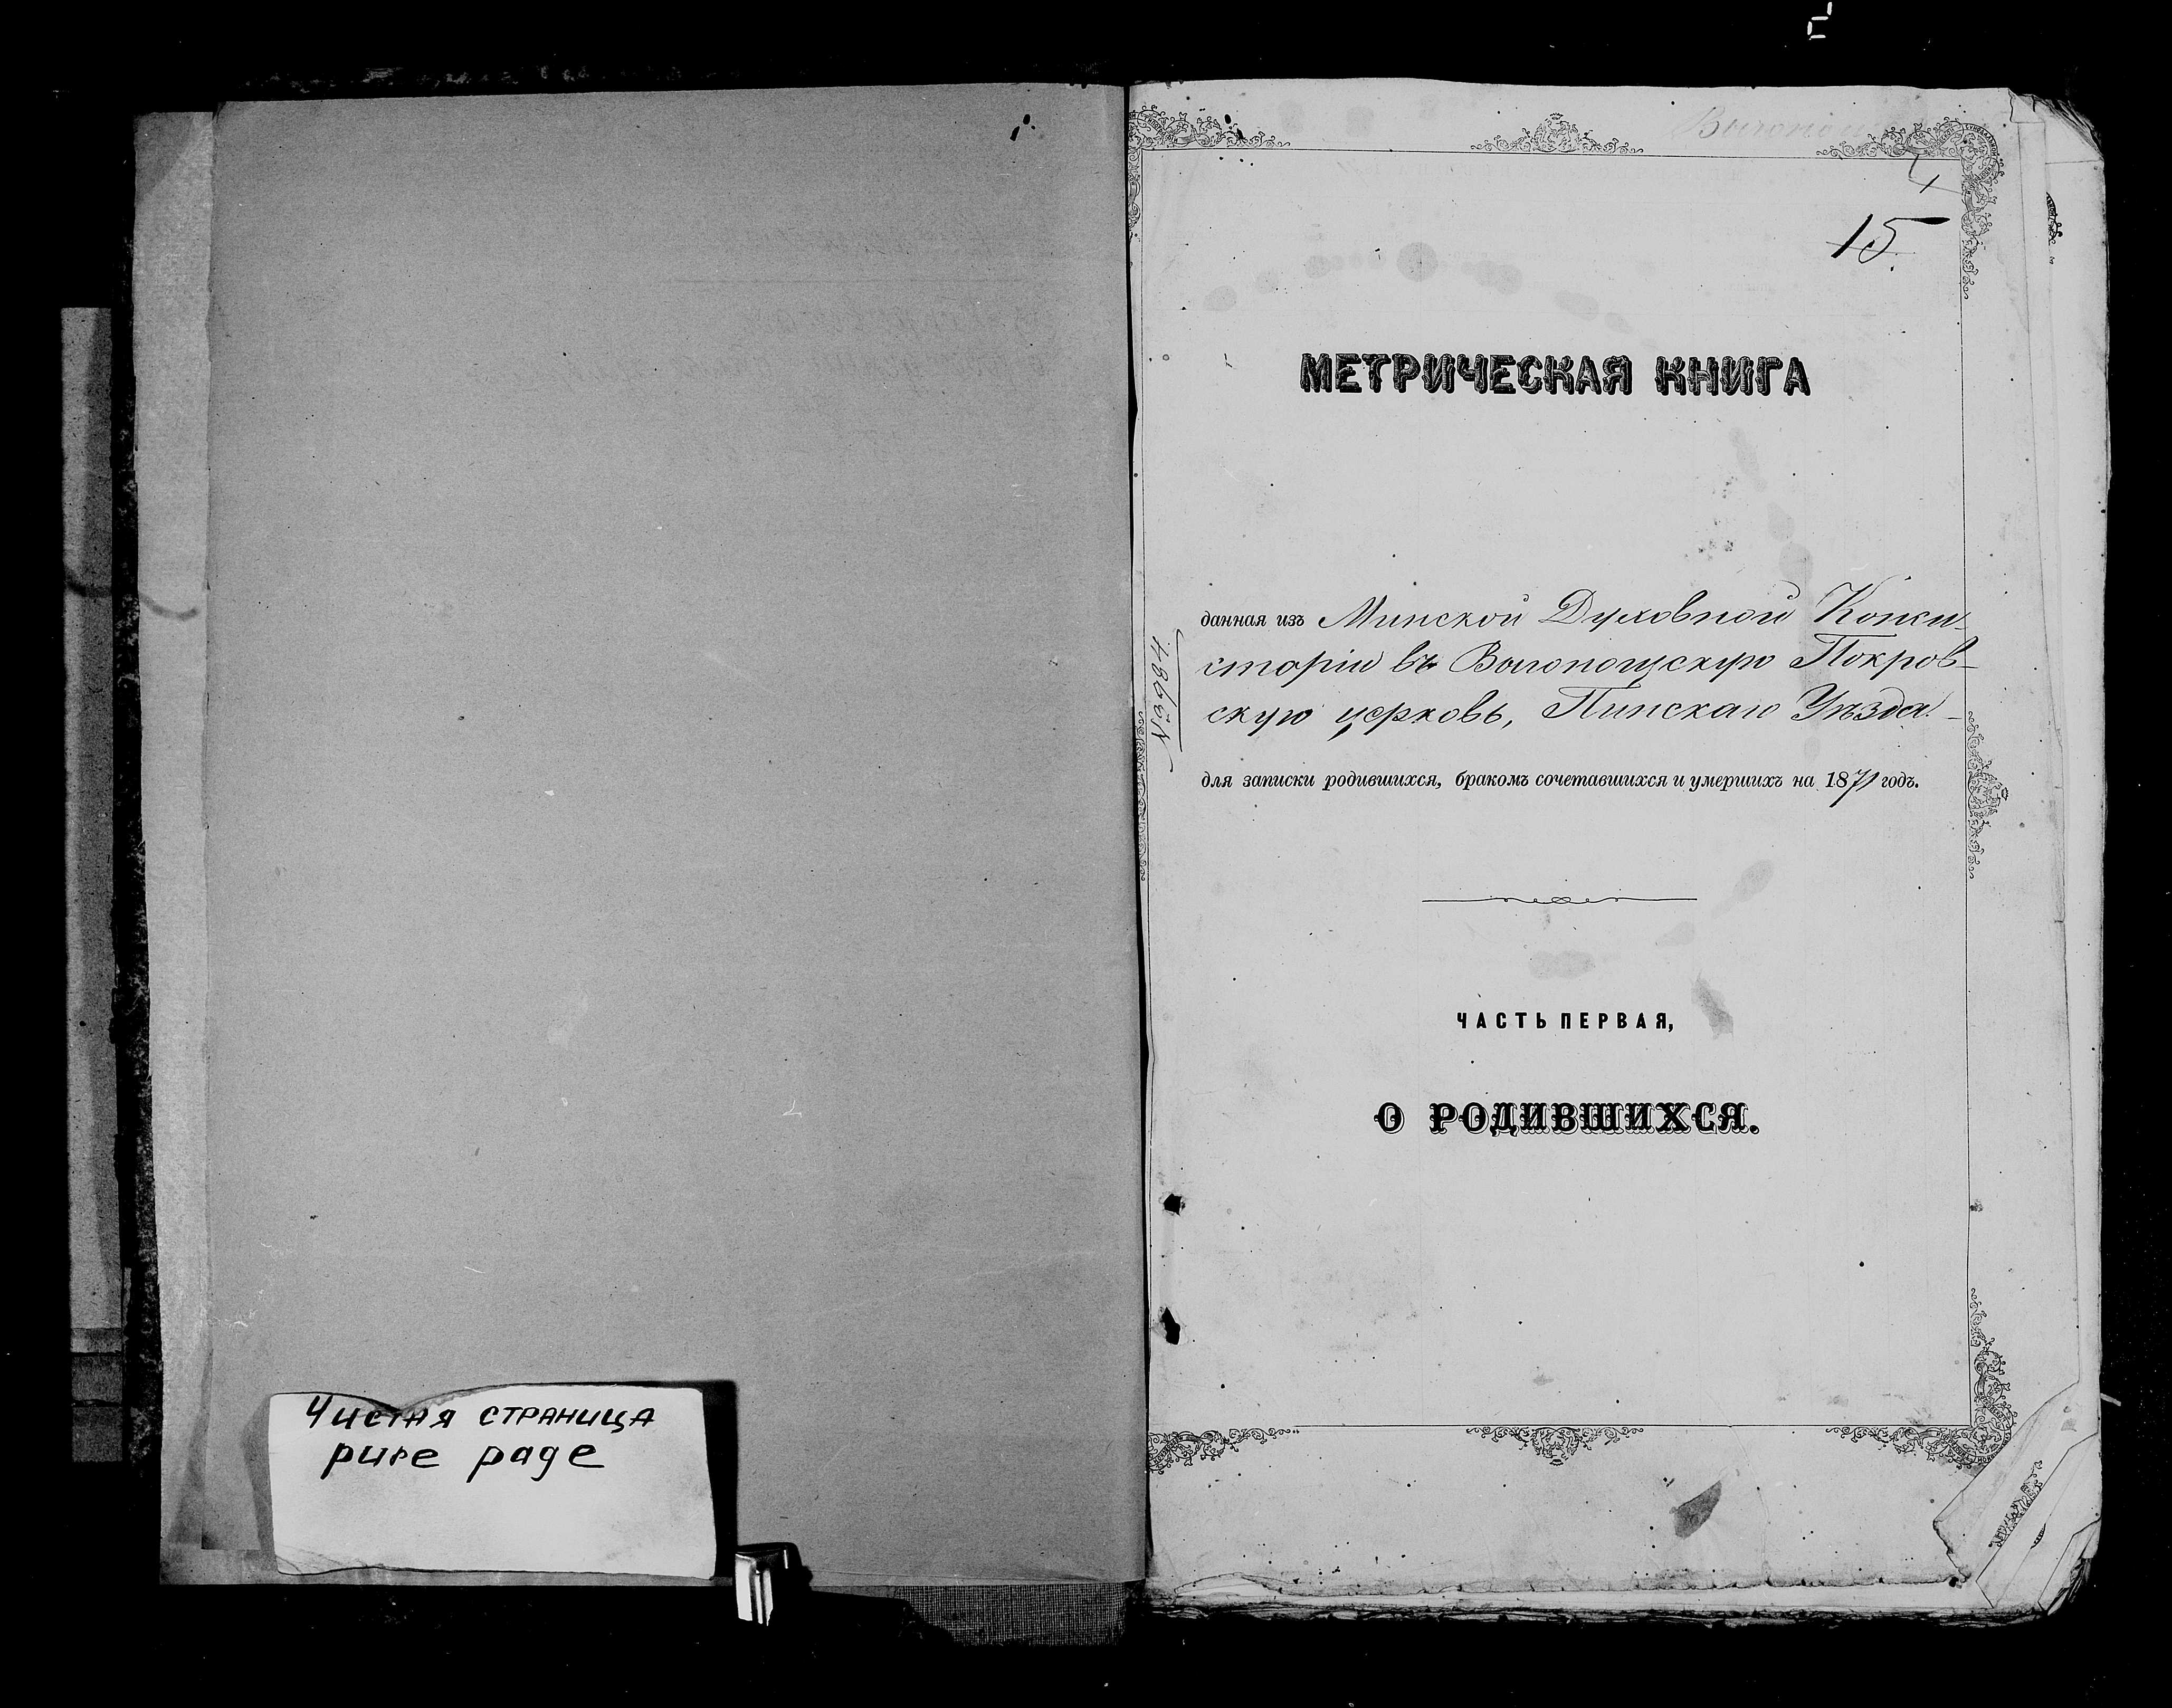 Чистая страница
pure page
15.
МЕТРИЧЕСКАЯ КНИГА
данная изъ Минской Духовной Конси-
сторіи въ Выгонощскую Покров-
скую церковь, Пинскаго Уѣзда
№ 3984.
для записки родившихся, бракомъ сочетавшихся и умершихъ на 1871 годъ.
ЧАСТЬ ПЕРВАЯ,
О РОДИВШИХСЯ.